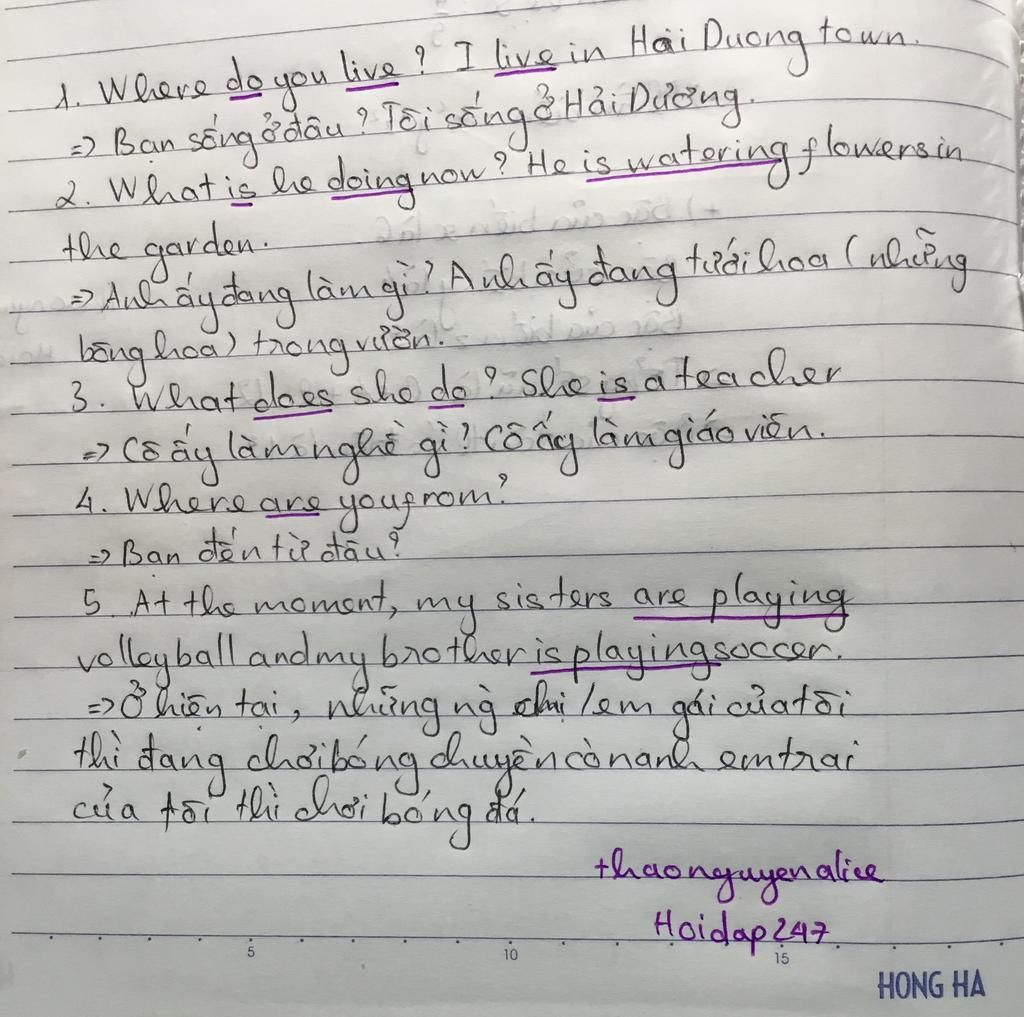 1. Where do you live? I live in Hai Duong town.
=> Bạn sống ở đâu? Tôi sống ở Hải Dương.
2. What is he doing now? He is watering flowers in
the garden.
=> Anh ấy đang làm gì? Anh ấy đang tưới hoa (những
bông hoa) trong vườn.
3. What does she do? She is a teacher
=> Cô ấy làm nghề gì? Cô ấy làm giáo viên.
4. Where are you from?
=> Bạn đến từ đâu?
5. At the moment, my sisters are playing
volleyball and my brother is playing soccer.
=> Ở hiện tại, những ng chị/em gái của tôi
thì đang chơi bóng chuyền còn anh em trai
của tôi thì chơi bóng đá.
thaonguyenalice
Hoidap247
5 10 15
HONG HA